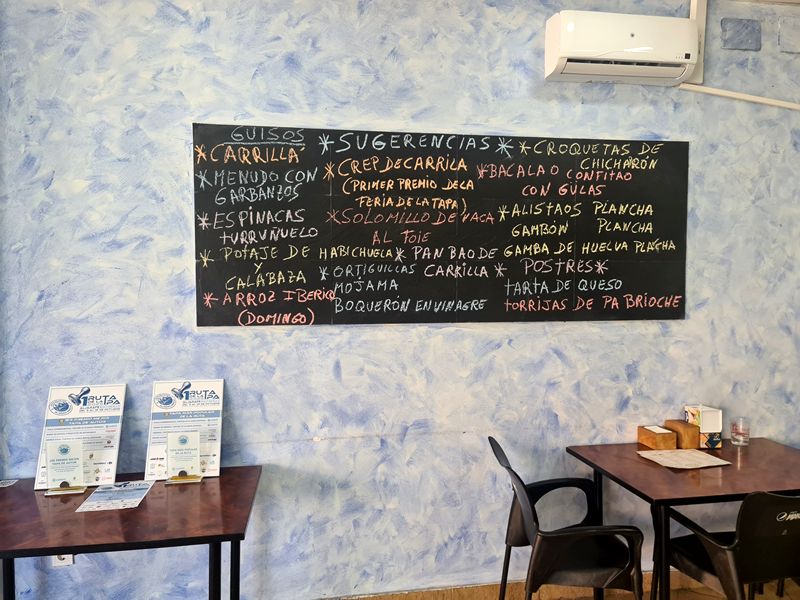 GUISOS
*CARRILLA
*MENUDO CON
GARBANZOS
*ESPINACAS
TURRUÑUELO
*POTAJE DE HABICHUELA
Y
CALABAZA
*ARROZ IBERICO
(DOMINGO)
*SUGERENCIAS*
*CREP DE CARRILA
(PRIMER PREMIO DE LA
FERIA DE LA TAPA)
*SOLOMILLO DE VACA
AL FOIE
*PAN BAO DE
CARRILLA
*ORTIGUILLAS
MOJAMA
BOQUERÓN EN VINAGRE
*CROQUETAS DE
CHICHARÓN
*BACALAO CONFITAO
CON GULAS
*ALISTAOS PLANCHA
GAMBÓN PLANCHA
GAMBA DE HUELVA PLANCHA
*POSTRES*
TARTA DE QUESO
TORRIJAS DE PA BRIOCHE
1 RUTA
TAPA DE AUTOR
1 RUTA